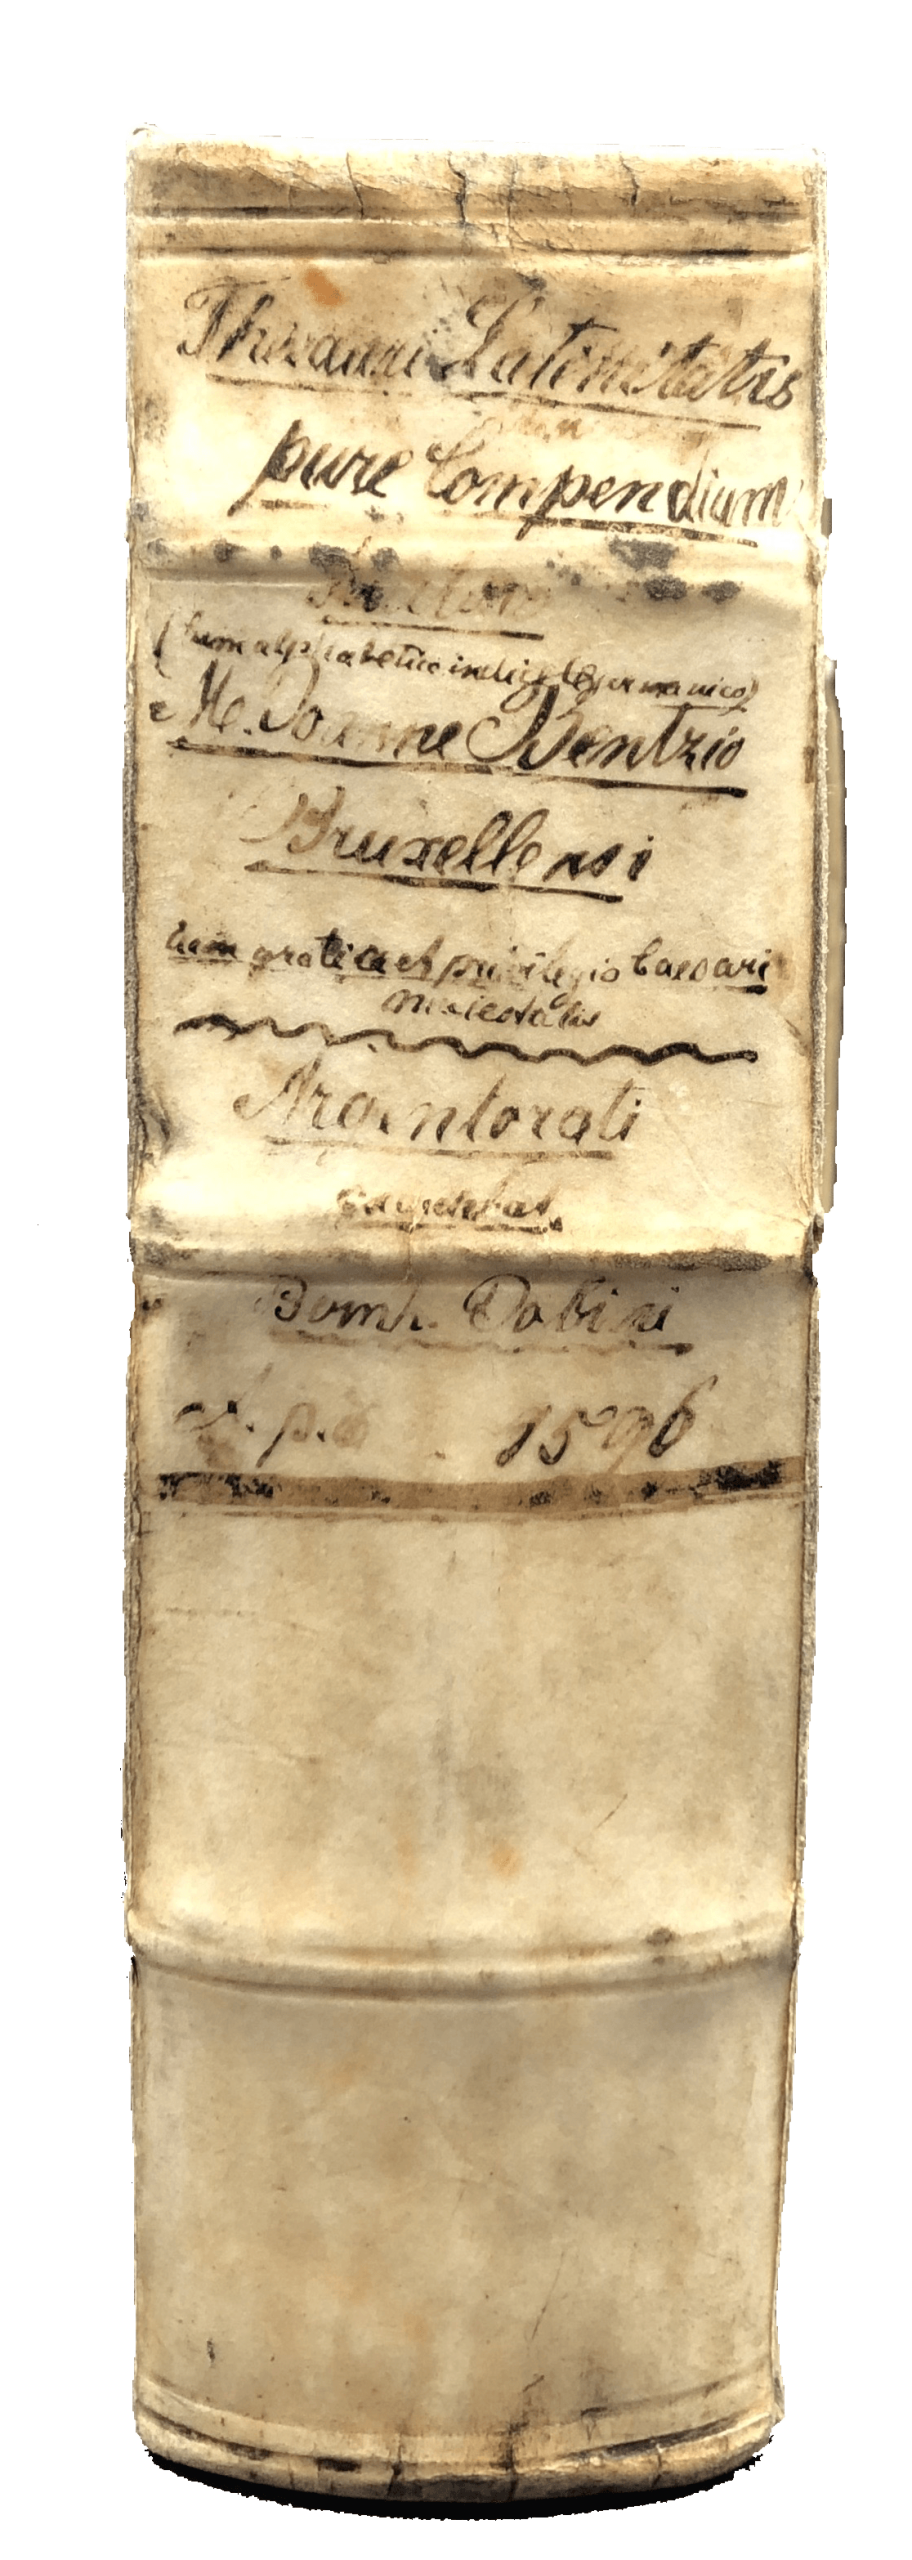 Thesauri Latinitatis
pure Compendium
(cum alphabetico indice germanico)
M. Joanne Bentzio
Bruxellensi
cum gratia et privilegio Caesari
maiestatis
Argentorati
Tobini
1596